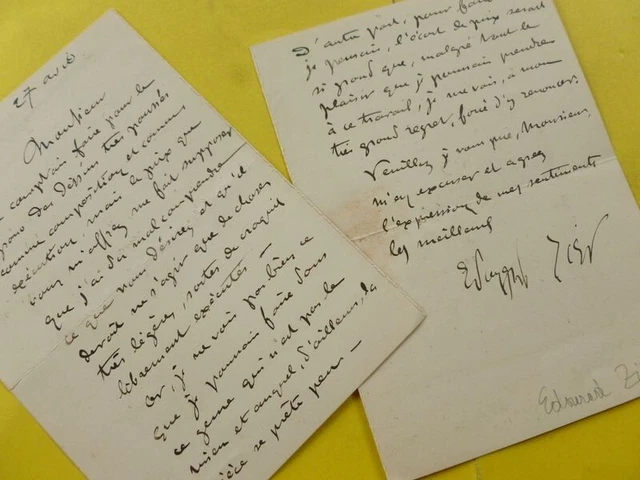 27 avril
Monsieur
comptais faire pour le
piano des dessins très poussés
comme composition et comme
exécution, mais le prix que
vous m'offrez me fait supposer
que j'ai dû mal comprendre
ce que vous désirez et qu'il
devait ne s'agir que de choses
très légères, sortes de croquis
librement exécutés —
or, je ne vois pas bien ce
que je pourrais faire dans
ce genre qui n'est pas le
mien et auquel, d'ailleurs, la
pièce se prête peu —
D'autre part, pour faire
je pensais, l'écart de prix serait
si grand que, malgré tout le
plaisir que j'y pourrais prendre
à ce travail, je me vois, à mon
très grand regret, forcé d'y renoncer.
Veuillez, je vous prie, Monsieur,
m'en excuser et agréez
l'expression de mes sentiments
les meilleurs
Edouard Zier
Edouard Zi